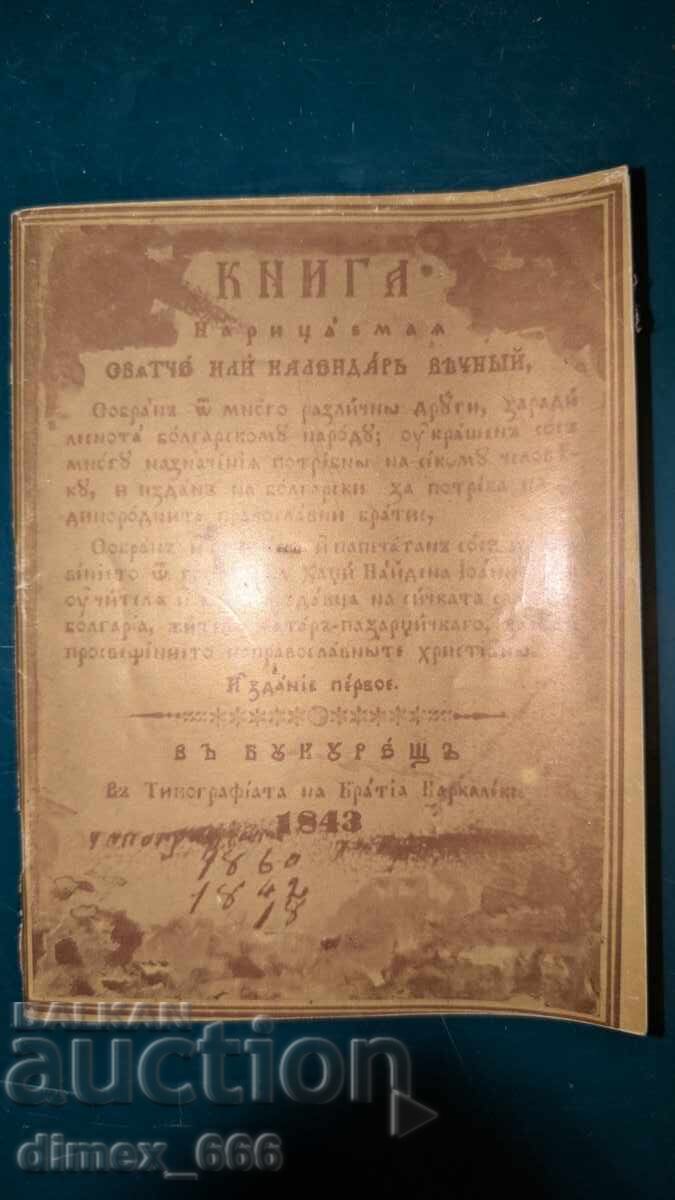 КНИГА
Нарица́емая
СВѦТЧЕ́ ИЛИ́ КАЛЕНДА́РЬ ВѢ́ЧНЫЙ,
Собранъ ѿ мно́го разли́чны дрꙋ́ги, заради́
леснота̀ бо́лгарскомꙋ наро́дꙋ; оу҆краше́нъ со́съ
мно́гꙋ назначе́нїѧ потрѣ́бны на си́комꙋ человѣ́-
кꙋ, и изда́нъ на бо́лгарски за потрѣ́ба на
динородните правосла́вни бра́тие,
Собра́нъ и҆ й напеча́танъ со́съ
Хаџи́ На́йдена Їоа́нно
оу҆чи́телѧ на си́чката
болга́рїа, жи́телѧ тата́ръ-пазарџи́чкаго,
просвѣще́нието нѐправосла́вныте христїѧ́ны.
И҆зда́нїе пе́рвое.
ВЪ БꙊКꙊРЕ́ЩЪ
Въ Типографі́ата на Бра́тїа Каркале́ки
1843
1860
1842
18
BALKAN
auction
dimex_666